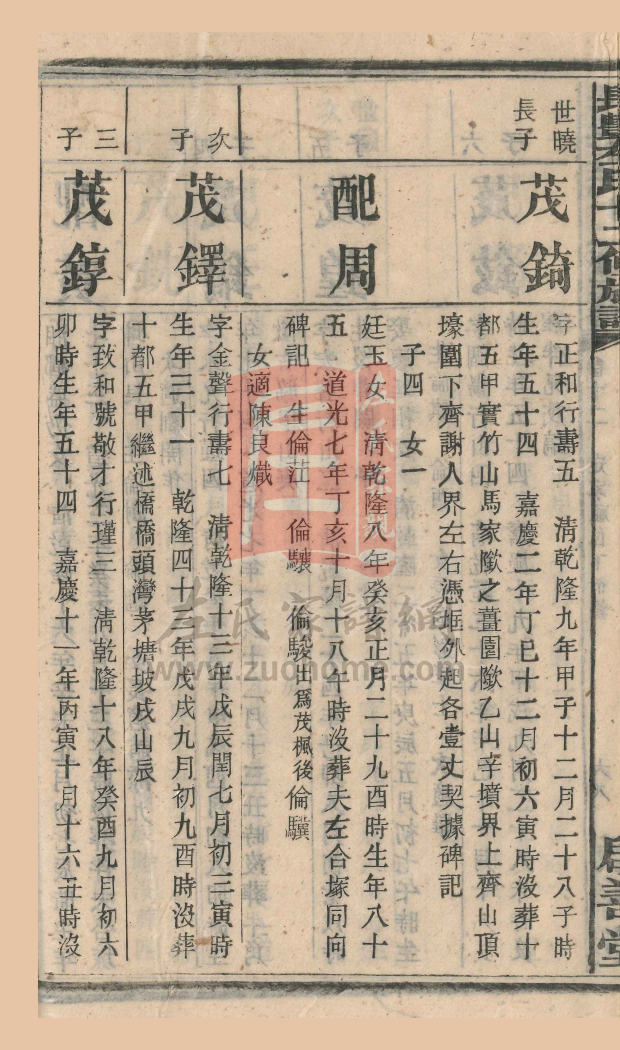 世曉
長子
茂錡
字正和行壽五　清乾隆九年甲子十二月二十八子時
生年五十四　嘉慶二年丁巳十二月初六寅時沒葬十
都五甲實竹山馬家歟之薑園歟乙山辛墳界上齊山頂
壕圍下齊謝人界左右憑堆外起各壹丈契據碑記
子四　女一
配周
廷玉女　清乾隆八年癸亥正月二十九酉時生年八十
五　道光七年丁亥十月十八午時沒葬夫左合塚同向
碑記　生倫茳　倫驤　倫駿出爲茂楓後倫驥
女適陳良熾
次
子
茂鐸
字金聲行壽七　清乾隆十三年戊辰閏七月初三寅時
生年三十一　乾隆四十三年戊戌九月初九酉時沒葬
十都五甲繼述橋橋頭灣茅塘坡戌山辰
三
子
茂錞
字致和號敬才行瑾三　清乾隆十八年癸酉九月初六
卯時生年五十四　嘉慶十一年丙寅十月十六丑時沒
左氏家譜網
www.zuohome.com